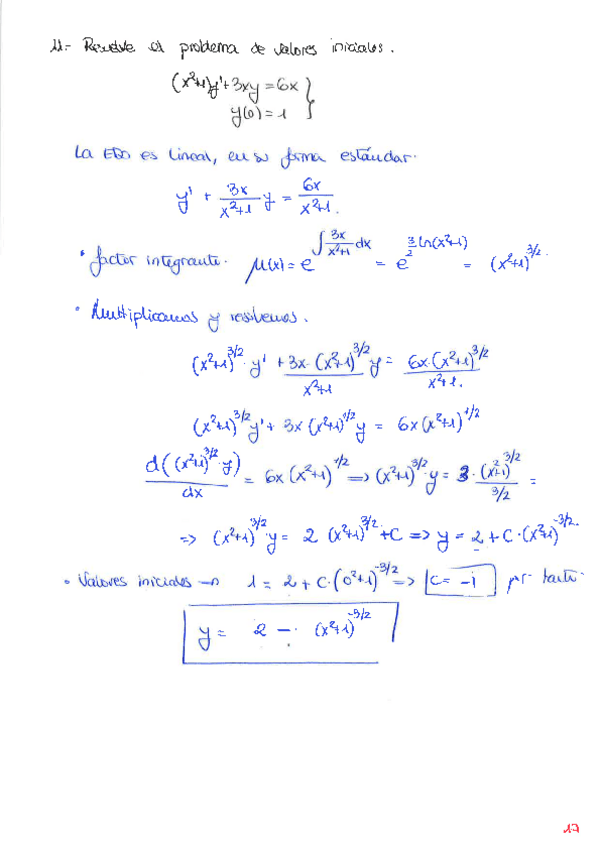 11.- Resuelve el problema de valores iniciales.
(x²+1)y'+3xy = 6x }
y(0) = 1
La EDO es lineal, en su forma estándar.
y' + 3x/(x²+1) y = 6x/(x²+1).
• factor integrante. μ(x) = e^(∫ 3x/(x²+1) dx) = e^(3/2 Ln(x²+1)) = (x²+1)^(3/2).
• Multiplicamos y resolvemos.
(x²+1)^(3/2) · y' + 3x·(x²+1)^(3/2)/(x²+1) y = 6x·(x²+1)^(3/2)/(x²+1).
(x²+1)^(3/2) y' + 3x (x²+1)^(1/2) y = 6x(x²+1)^(1/2)
d((x²+1)^(3/2)·y)/dx = 6x(x²+1)^(1/2) => (x²+1)^(3/2) y = 3·(x²+1)^(3/2)/(3/2) =
=> (x²+1)^(3/2) y = 2 (x²+1)^(3/2) + C => y = 2 + C·(x²+1)^(-3/2).
• Valores iniciales → 1 = 2 + C·(0²+1)^(-3/2) => C = -1 por tanto
y = 2 - (x²+1)^(-3/2)
17